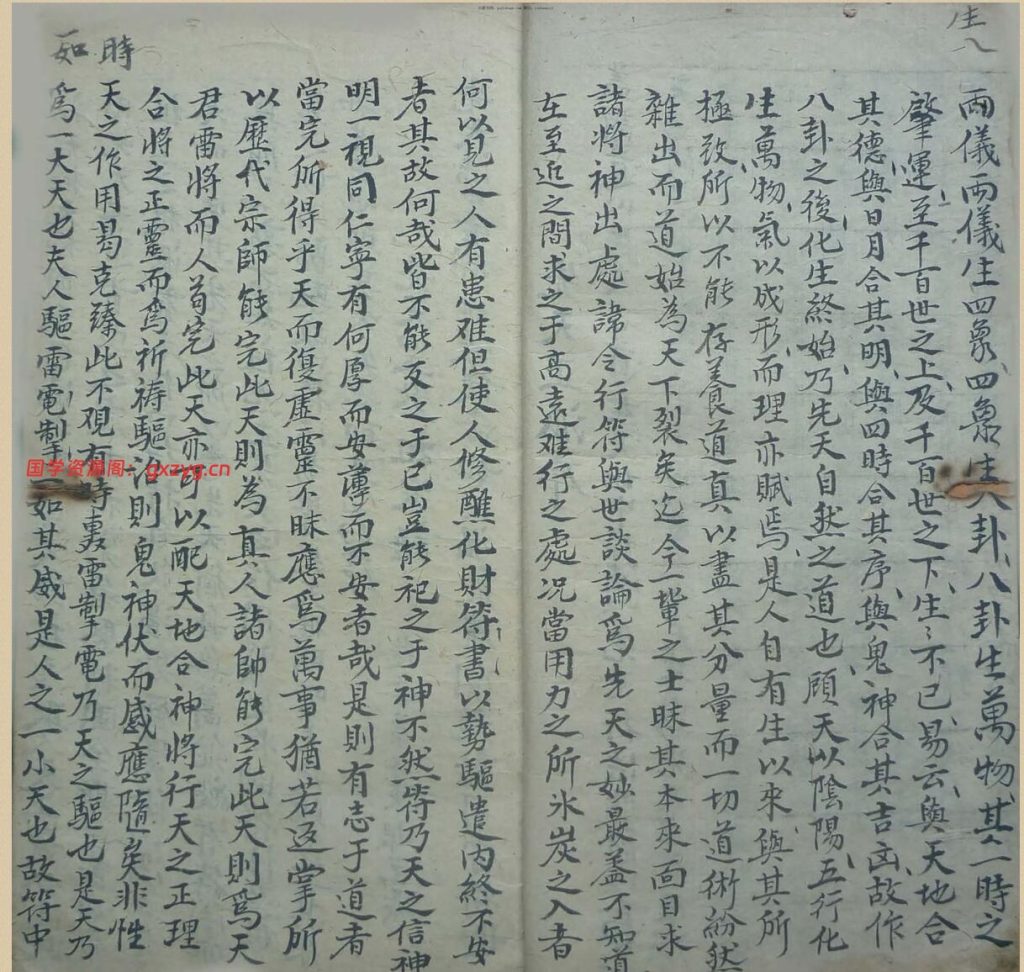 生八
兩儀兩儀生四象四象生八卦八卦生萬物其一時之
肇運至千百世之上及千百世之下生〻不已易云與天地合
其德與日月合其明與四時合其序與鬼神合其吉凶故作
八卦之後化生終始乃先天自然之道也顧天以陰陽五行化
生萬物氣以成形而理亦賦焉是人自有生以來與其所
極致所以不能存養道真以盡其分量而一切道術紛然
雜出而道始為天下裂矣迄今一輩之士昧其本來面目求
諸將神出處諱令行符與世談論爲先天之妙最盖不知道
在至近之間求之于高遠难行之處况當用力之所氷炭之入者
何以見之人有患难但使人修醮化財符書以勢驅遣内終不安
者其故何哉皆不能反之于已豈能祀之于神不然符乃天之信神
明一視同仁寧有何厚而安薄而不安者哉是則有志于道者
當完所得乎天而復虚靈不昧應爲萬事猶若返掌所
以歷代宗師能完此天則為真人諸帥能完此天則爲天
君雷將而人苟完此天亦可以配天地合神將行天之正理
合將之正靈而爲祈禱驅治則鬼神伏而感應隨矣非性
時
天之作用曷克臻此不覌有時轟雷掣電乃天之驅也是天乃
如
爲一大天也夫人驅雷電掣一如其威是人之一小天也故符中
国学资源阁- gxzyg.cn